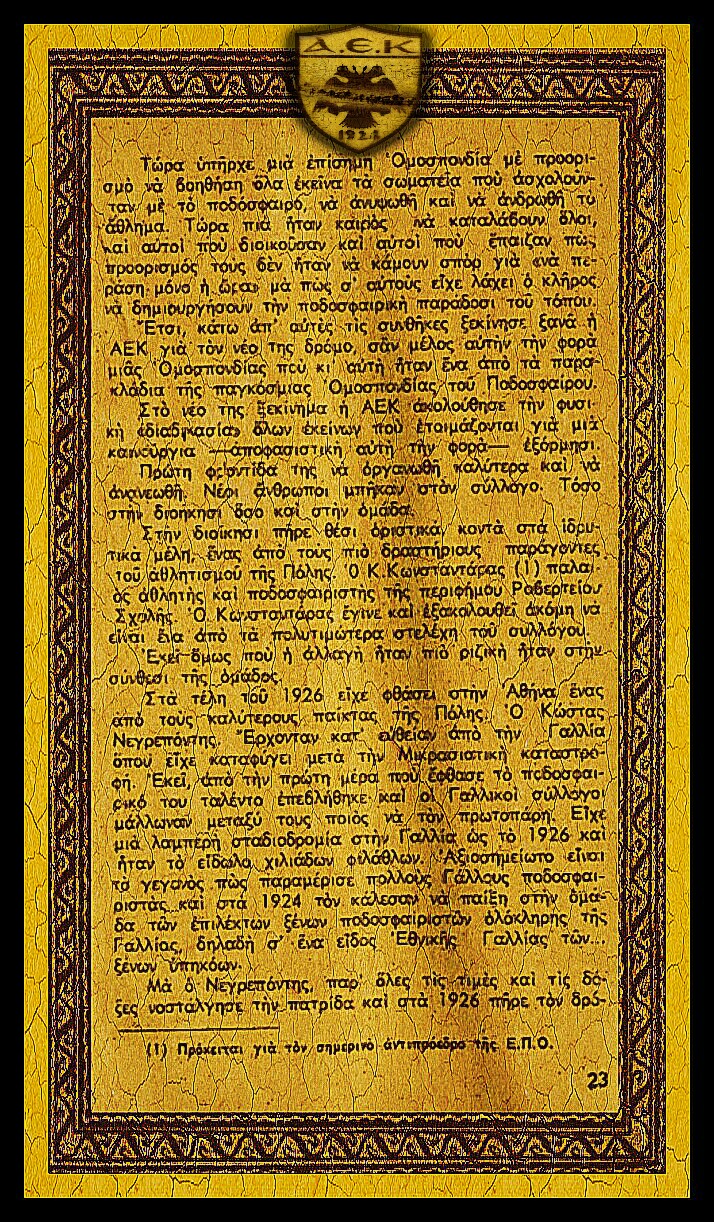 Α.Ε.Κ
1924
Τώρα ὑπῆρχε μιὰ ἐπίσημη Ὁμοσπονδία μὲ προορι-
σμὸ νὰ βοηθήση ὅλα ἐκεῖνα τὰ σωματεῖα ποὺ ἀσχολοῦν-
ταν μὲ τὸ ποδόσφαιρο, νὰ ἀνυψωθῆ καὶ νὰ ἀνδρωθῆ τὸ
ἄθλημα. Τώρα πιὰ ἦταν καιρὸς νὰ καταλάβουν ὅλοι,
καὶ αὐτοὶ ποὺ διοικοῦσαν καὶ αὐτοὶ ποὺ ἔπαιζαν πὼς
προορισμός τους δὲν ἦταν νὰ κάμουν σπὸρ γιὰ νὰ πε-
ράση μόνο ἡ ὥρα, μὰ πὼς σ' αὐτοὺς εἶχε λάχει ὁ κλῆρος
νὰ δημιουργήσουν τὴν ποδοσφαιρικὴ παράδοσι τοῦ τόπου.
Ἔτσι, κάτω ἀπ' αὐτὲς τὶς συνθῆκες ξεκίνησε ξανὰ ἡ
ΑΕΚ γιὰ τὸν νέο της δρόμο, σὰν μέλος αὐτὴν τὴν φορὰ
μιᾶς Ὁμοσπονδίας ποὺ κι' αὐτὴ ἦταν ἕνα ἀπὸ τὰ παρα-
κλάδια τῆς παγκόσμιας Ὁμοσπονδίας τοῦ Ποδοσφαίρου.
Στὸ νέο της ξεκίνημα ἡ ΑΕΚ ἀκολούθησε τὴν φυσι-
κὴ «διαδικασία» ὅλων ἐκείνων ποὺ ἑτοιμάζονται γιὰ μιὰ
καινούργια —ἀποφασιστικὴ αὐτὴ τὴν φορὰ— ἐξόρμησι.
Πρώτη φροντίδα της νὰ ὀργανωθῆ καλύτερα καὶ νὰ
ἀνανεωθῆ. Νέοι ἄνθρωποι μπῆκαν στὸν σύλλογο. Τόσο
στὴν διοίκησι ὅσο καὶ στὴν ὁμάδα.
Στὴν διοίκησι πῆρε θέσι ὁριστικὰ, κοντὰ στὰ ἱδρυ-
τικὰ μέλη, ἕνας ἀπὸ τοὺς πιὸ δραστήριους παράγοντες
τοῦ ἀθλητισμοῦ τῆς Πόλης. Ὁ Κ. Κωνσταντάρας (1) παλαι-
ὸς ἀθλητὴς καὶ ποδοσφαιριστὴς τῆς περιφήμου Ροβερτείου
Σχολῆς. Ὁ Κωνσταντάρας ἔγινε καὶ ἐξακολουθεῖ ἀκόμη νὰ
εἶναι ἕνα ἀπὸ τὰ πολυτιμώτερα στελέχη τοῦ συλλόγου.
Ἐκεῖ ὅμως ποὺ ἡ ἀλλαγὴ ἦταν πιὸ ριζικὴ ἦταν στὴν
σύνθεσι τῆς ὁμάδος.
Στὰ τέλη τοῦ 1926 εἶχε φθάσει στὴν Ἀθήνα ἕνας
ἀπὸ τοὺς καλύτερους παῖκτας τῆς Πόλης. Ὁ Κώστας
Νεγρεπόντης. Ἔρχονταν κατ' εὐθεῖαν ἀπὸ τὴν Γαλλία
ὅπου εἶχε καταφύγει μετὰ τὴν Μικρασιατικὴ καταστρο-
φή. Ἐκεῖ, ἀπὸ τὴν πρώτη μέρα ποὺ ἔφθασε τὸ ποδοσφαι-
ρικό του ταλέντο ἐπεβλήθηκε καὶ οἱ Γαλλικοὶ σύλλογοι
μάλλωναν μεταξύ τους ποιὸς νὰ τὸν πρωτοπάρη. Εἶχε
μιὰ λαμπερὴ σταδιοδρομία στὴν Γαλλία ὡς τὸ 1926 καὶ
ἦταν τὸ εἴδωλο χιλιάδων φιλάθλων. Ἀξιοσημείωτο εἶναι
τὸ γεγονὸς πὼς παραμέρισε πολλοὺς Γάλλους ποδοσφαι-
ριστὰς καὶ στὰ 1924 τὸν κάλεσαν νὰ παίξη στὴν ὁμά-
δα τῶν ἐπιλέκτων ξένων ποδοσφαιριστῶν ὁλόκληρης τῆς
Γαλλίας, δηλαδὴ σ' ἕνα εἶδος Ἐθνικῆς Γαλλίας τῶν...
ξένων ὑπηκόων.
Μὰ ὁ Νεγρεπόντης, παρ' ὅλες τὶς τιμὲς καὶ τὶς δό-
ξες νοστάλγησε τὴν πατρίδα καὶ στὰ 1926 πῆρε τὸν δρό-
(1) Πρόκειται γιὰ τὸν σημερινὸ ἀντιπρόεδρο τῆς Ε.Π.Ο.
23